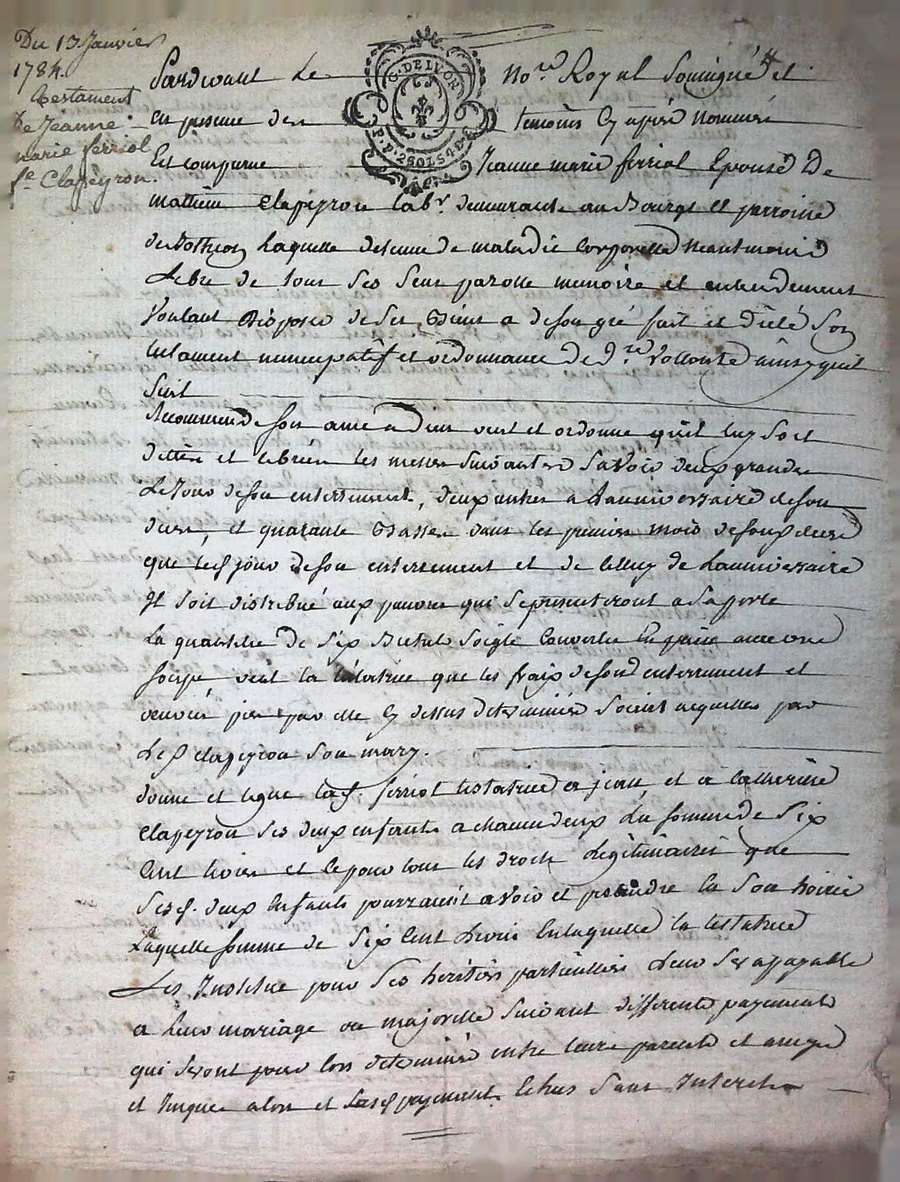 Du 13 Janvier
1784.
Testament
De Jeanne
marie ferriol
fe. Clapeyron.
G. DE LYON
Pardevant Le no.re Royal Soussigné et
en presence des temoins Cy après nommés
Est comparue Jeanne marie ferriol Epouse De
mathieu Clapeyron lab.r demeurante au Bourg et parroisse
de Laquelle detenue de maladie Corporelle Neantmoins
Libre de tous ses sens parolle memoire et entendement
Voulant Disposer de ses Biens a de son gré fait et dicté Son
testament nuncupatif et ordonnance de d.re Vollonté ainsy quil
suit
Recommende son ame a Dieu veut et ordonne quil luy soit
dittes et celebrées les messes suivantes Savoir deux grandes
Le Jour de son enterrement, deux autres a Lanniversaire de son
deces, et quarante Basses dans les premiers mois de son deces
que les jours de son enterrement et de celluy de Lanniversaire
Il soit distribué aux pauvres qui se presenteront a sa porte
La quantité de Six Bichets Soigle Convertis En pain avec une
soupe veut la testatrice que les fraix de son enterrement et
oeuvres pies par elle Cy dessus determinés soient acquittés par
Led. Clapeyron Son mary.
donne et legue lad. ferriol testatrice a jean, et a Catherine
Clapeyron ses deux enfants a chacun deux La somme de Six
Cent livres et ce pour tous les droits Légitimaires que
sesd. deux Enfants pourraient avoir et pretendre En Son hoirie
Laquelle somme de Six Cent Livres En laquelle la testatrice
Les Institue pour ses heritiers particulliers Leur sera payable
a leur mariage ou majorité Suivant differents payements
qui seront pour lors determinés entre leurs parents et amys
et Jusques alors et lesd. payements Echus Sans Interets